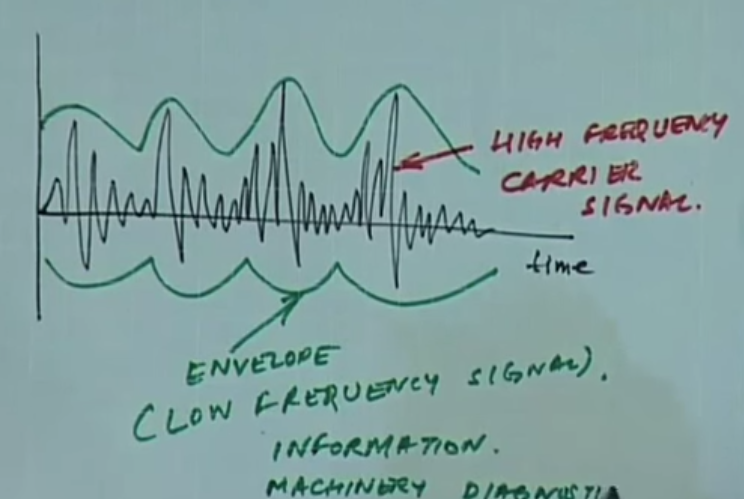 HIGH FREQUENCY
CARRIER
SIGNAL.
time
ENVELOPE
(LOW FREQUENCY SIGNAL).
INFORMATION.
MACHINERY DIAGNOSTI